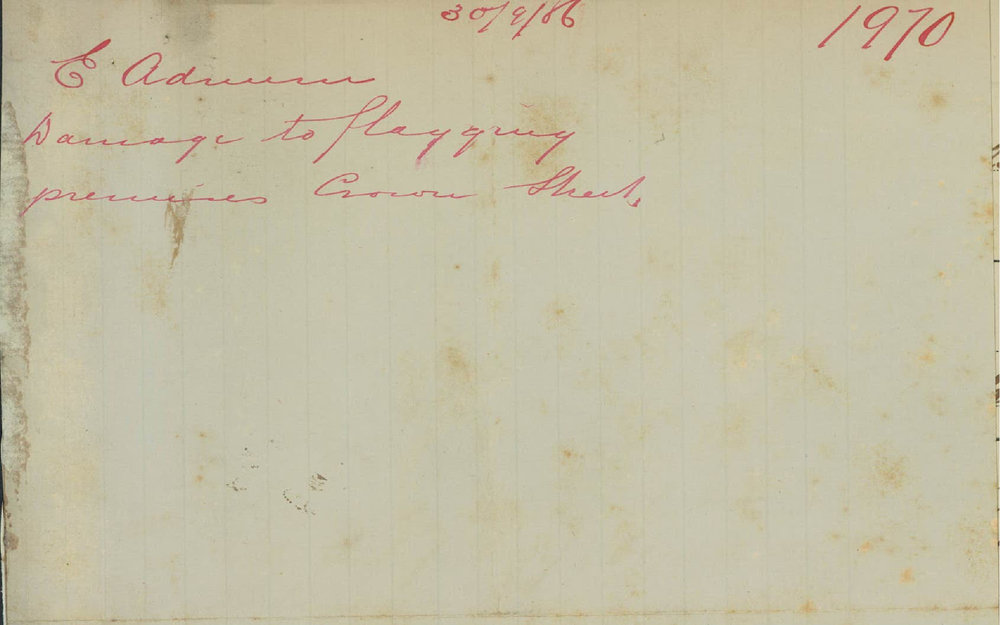 30/9/86
1970
E Admans
Damage to flagging
premises Crown Street,